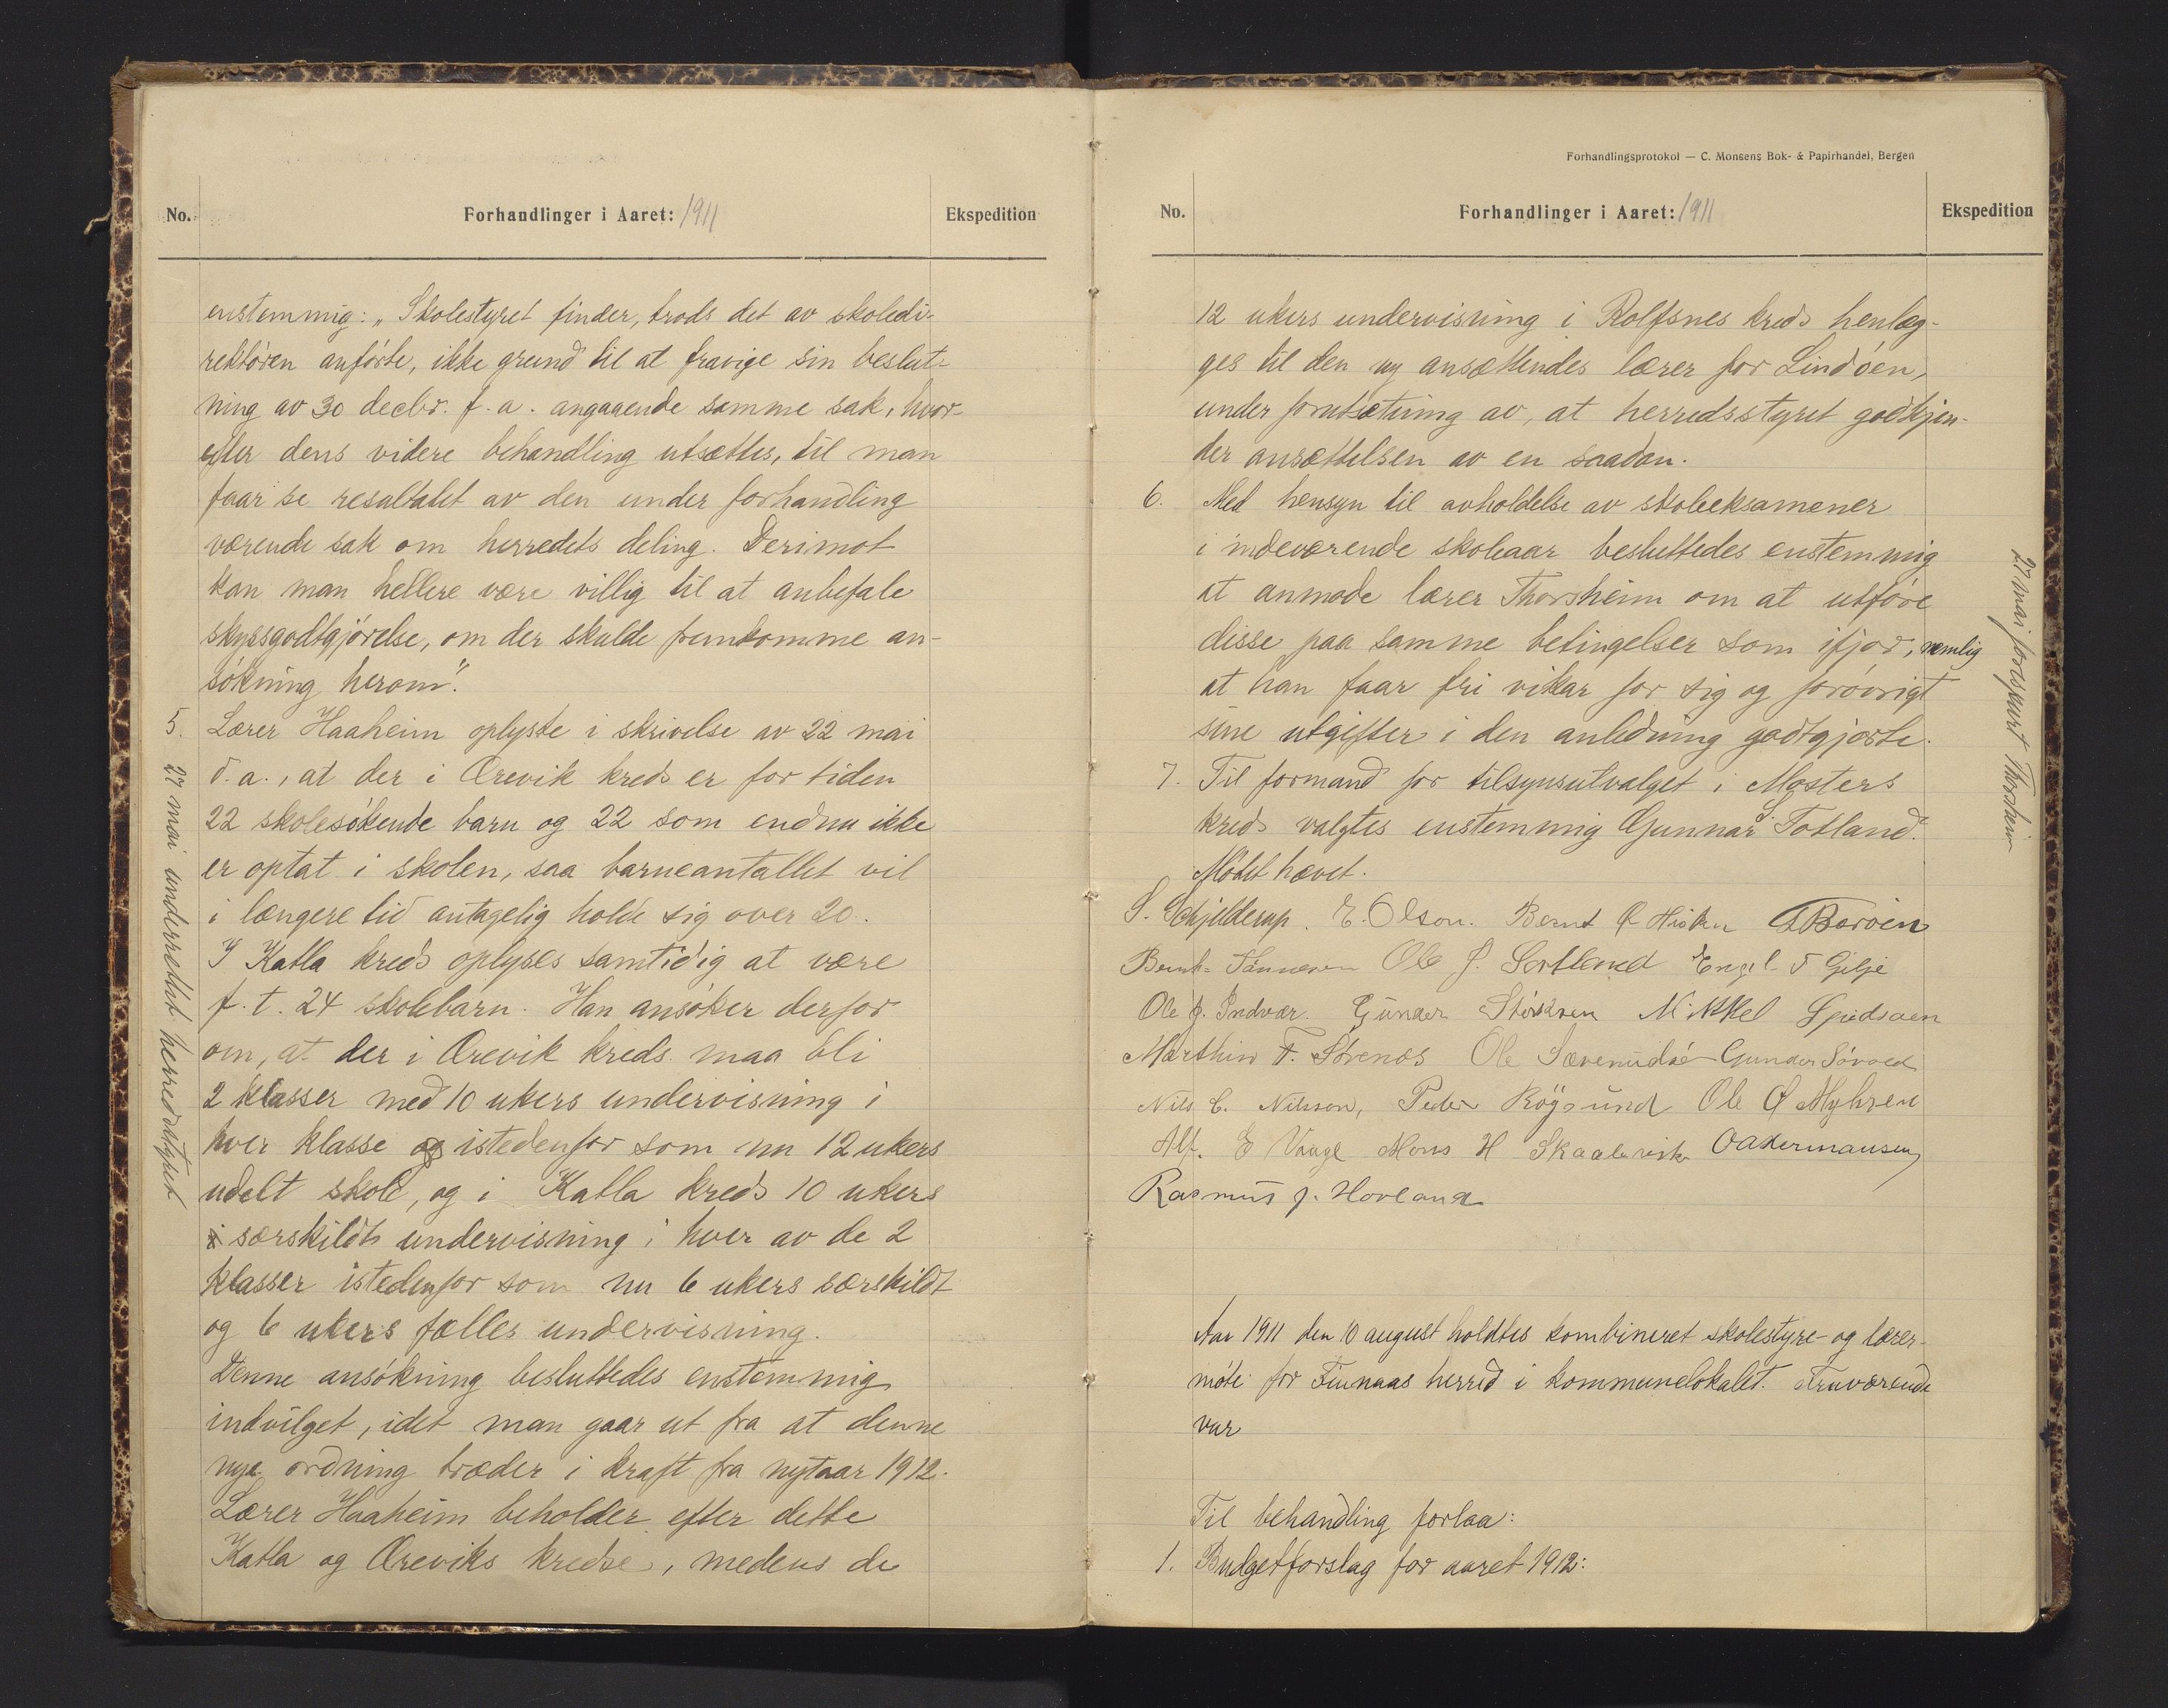 No.
Forhandlinger i Aaret: 1911
Ekspedition
enstemmig: „Skolestyret finder, trods det av skoledi-
rektören anförte, ikke grund til at fravige sin beslut-
ning av 30 decbr. f. a. angaaende samme sak, hvor-
efter dens videre behandling utsættes, til man
faar se resultatet av den under forhandling
værende sak om herredets deling. Derimot
kan man hellere være villig til at anbefale
skyssgodtgjörelse, om der skulde fremkomme an-
sökning herom".
5. Lærer Haaheim oplyste i skrivelse av 22 mai
d. a., at der i Ørevik kreds er for tiden
22 skolesökende barn og 22 som endnu ikke
er optat i skolen, saa barneantallet vil
i længere tid antagelig holde sig over 20.
I Katla kreds oplyses samtidig at være
f. t. 24 skolebarn. Han ansöker derfor
om, at der i Ørevik kreds maa bli
2 klasser med 10 ukers undervisning i
hver klasse og istedenfor som nu 12 ukers
udelt skole, og i Katla kreds 10 ukers
i særskildt undervisning i hver av de 2
klasser istedenfor som nu 6 ukers særskildt
og 6 ukers fælles undervisning.
Denne ansökning besluttedes enstemmig
indvilget, idet man gaar ut fra at denne
nye ordning træder i kraft fra nytaar 1912.
Lærer Haaheim beholder efter dette
Katla og Øreviks kredse, medens de
27 mai underrettet herredsstyret
Forhandlingsprotokol — C. Monsens Bok- & Papirhandel, Bergen
No.
Forhandlinger i Aaret: 1911
Ekspedition
12 ukers undervisning i Rolfsnes kreds henlæg-
ges til den ny ansættendes lærer for Lindöen,
under forutsætning av, at herredsstyret godkjen-
der ansættelsen av en saadan.
6. Med hensyn til avholdelse av skoleeksamener
i indeværende skoleaar besluttedes enstemmig
at anmode lærer Thorsheim om at utföre
disse paa samme betingelser som ifjor, nemlig
at han faar fri vikar for sig og forövrigt
sine utgifter i den anledning godtgjorte.
7. Til formand for tilsynsutvalget i Mosters
kreds valgtes enstemmig Gunnar S. Totland.
Mödet hævet.
S. Schjelderup. E. Olson. Bernt Hisken
Ole J. Sortland Engel T Gilje
Ole J. Indvær. Gunder Mikkel
Marthin T. Gunder
Nils C. Nilsson, Peder Röysund Ole Ø Myhren
Alf. E Vaage Mons H Skaalevik O Akermansen
Rasmus J. Hovland
27 mai Thorsheim
Aar 1911 den 10 august holdtes kombineret skolestyre- og lærer-
möte for Finnaas herred i kommunelokalet. Fraværende
var
Til behandling forlaa:
1. Budgetforslag for aaret 1912: